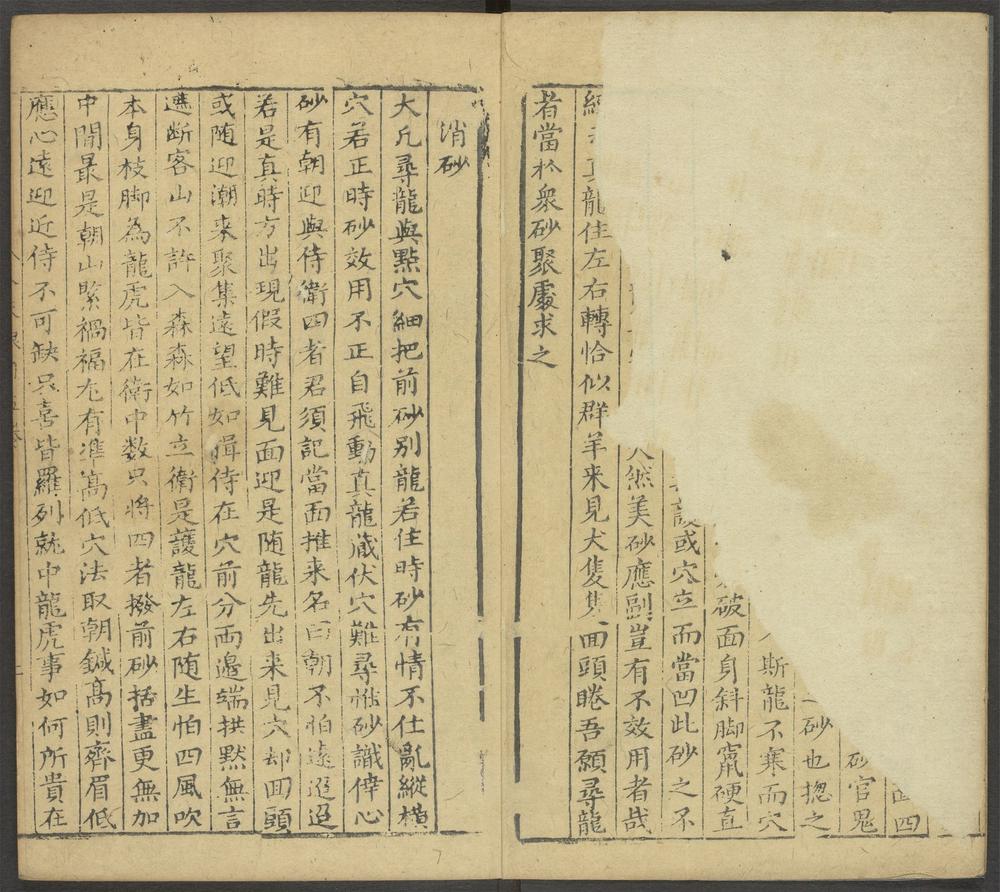 西四
砂官鬼
砂也揔之
斯龍不寒而穴
破面身斜脚竄硬直
或穴立而當凹此砂之不
人然美砂應副豈有不效用者哉
經 真龍住左右轉恰似群羊来見犬隻隻回頭睠吾願尋龍
者當於衆砂聚處求之
消砂
大凡尋龍與點穴細把前砂別龍若住時砂有情不住亂縱橫
穴若正時砂效用不正自飛動真龍藏伏穴難尋惟砂識倖心
砂有朝迎與侍衛四者君須記當面推来名曰朝不怕遠迢迢
若是真時方出現假時難見面迎是随龍先出来見穴却回頭
或随迎潮来聚集遠望低如揖侍在穴前分両邊端拱黙無言
遮断客山不許入森森如竹立衛是護龍左右随生怕四風吹
本身枝脚為龍虎皆在衛中数只将四者撥前砂括盡更無加
中間最是朝山緊禍福尤有準高低穴法取朝鍼高則齊眉低
應心遠迎近侍不可缺只喜皆羅列就中龍虎事如何所貴在